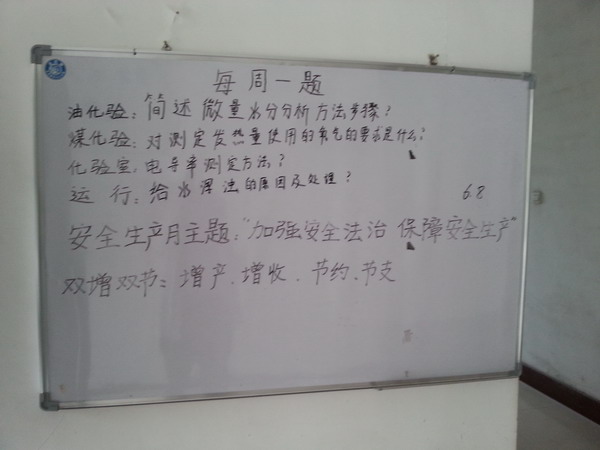 每周一题
油化验：简述微量水分分析方法步骤？
煤化验：对测定发热量使用的氧气的要求是什么？
化验室：电导率测定方法？
运 行：给水浑浊的原因及处理？
6.8
安全生产月主题："加强安全法治 保障安全生产"
双增双节：增产、增收、节约、节支